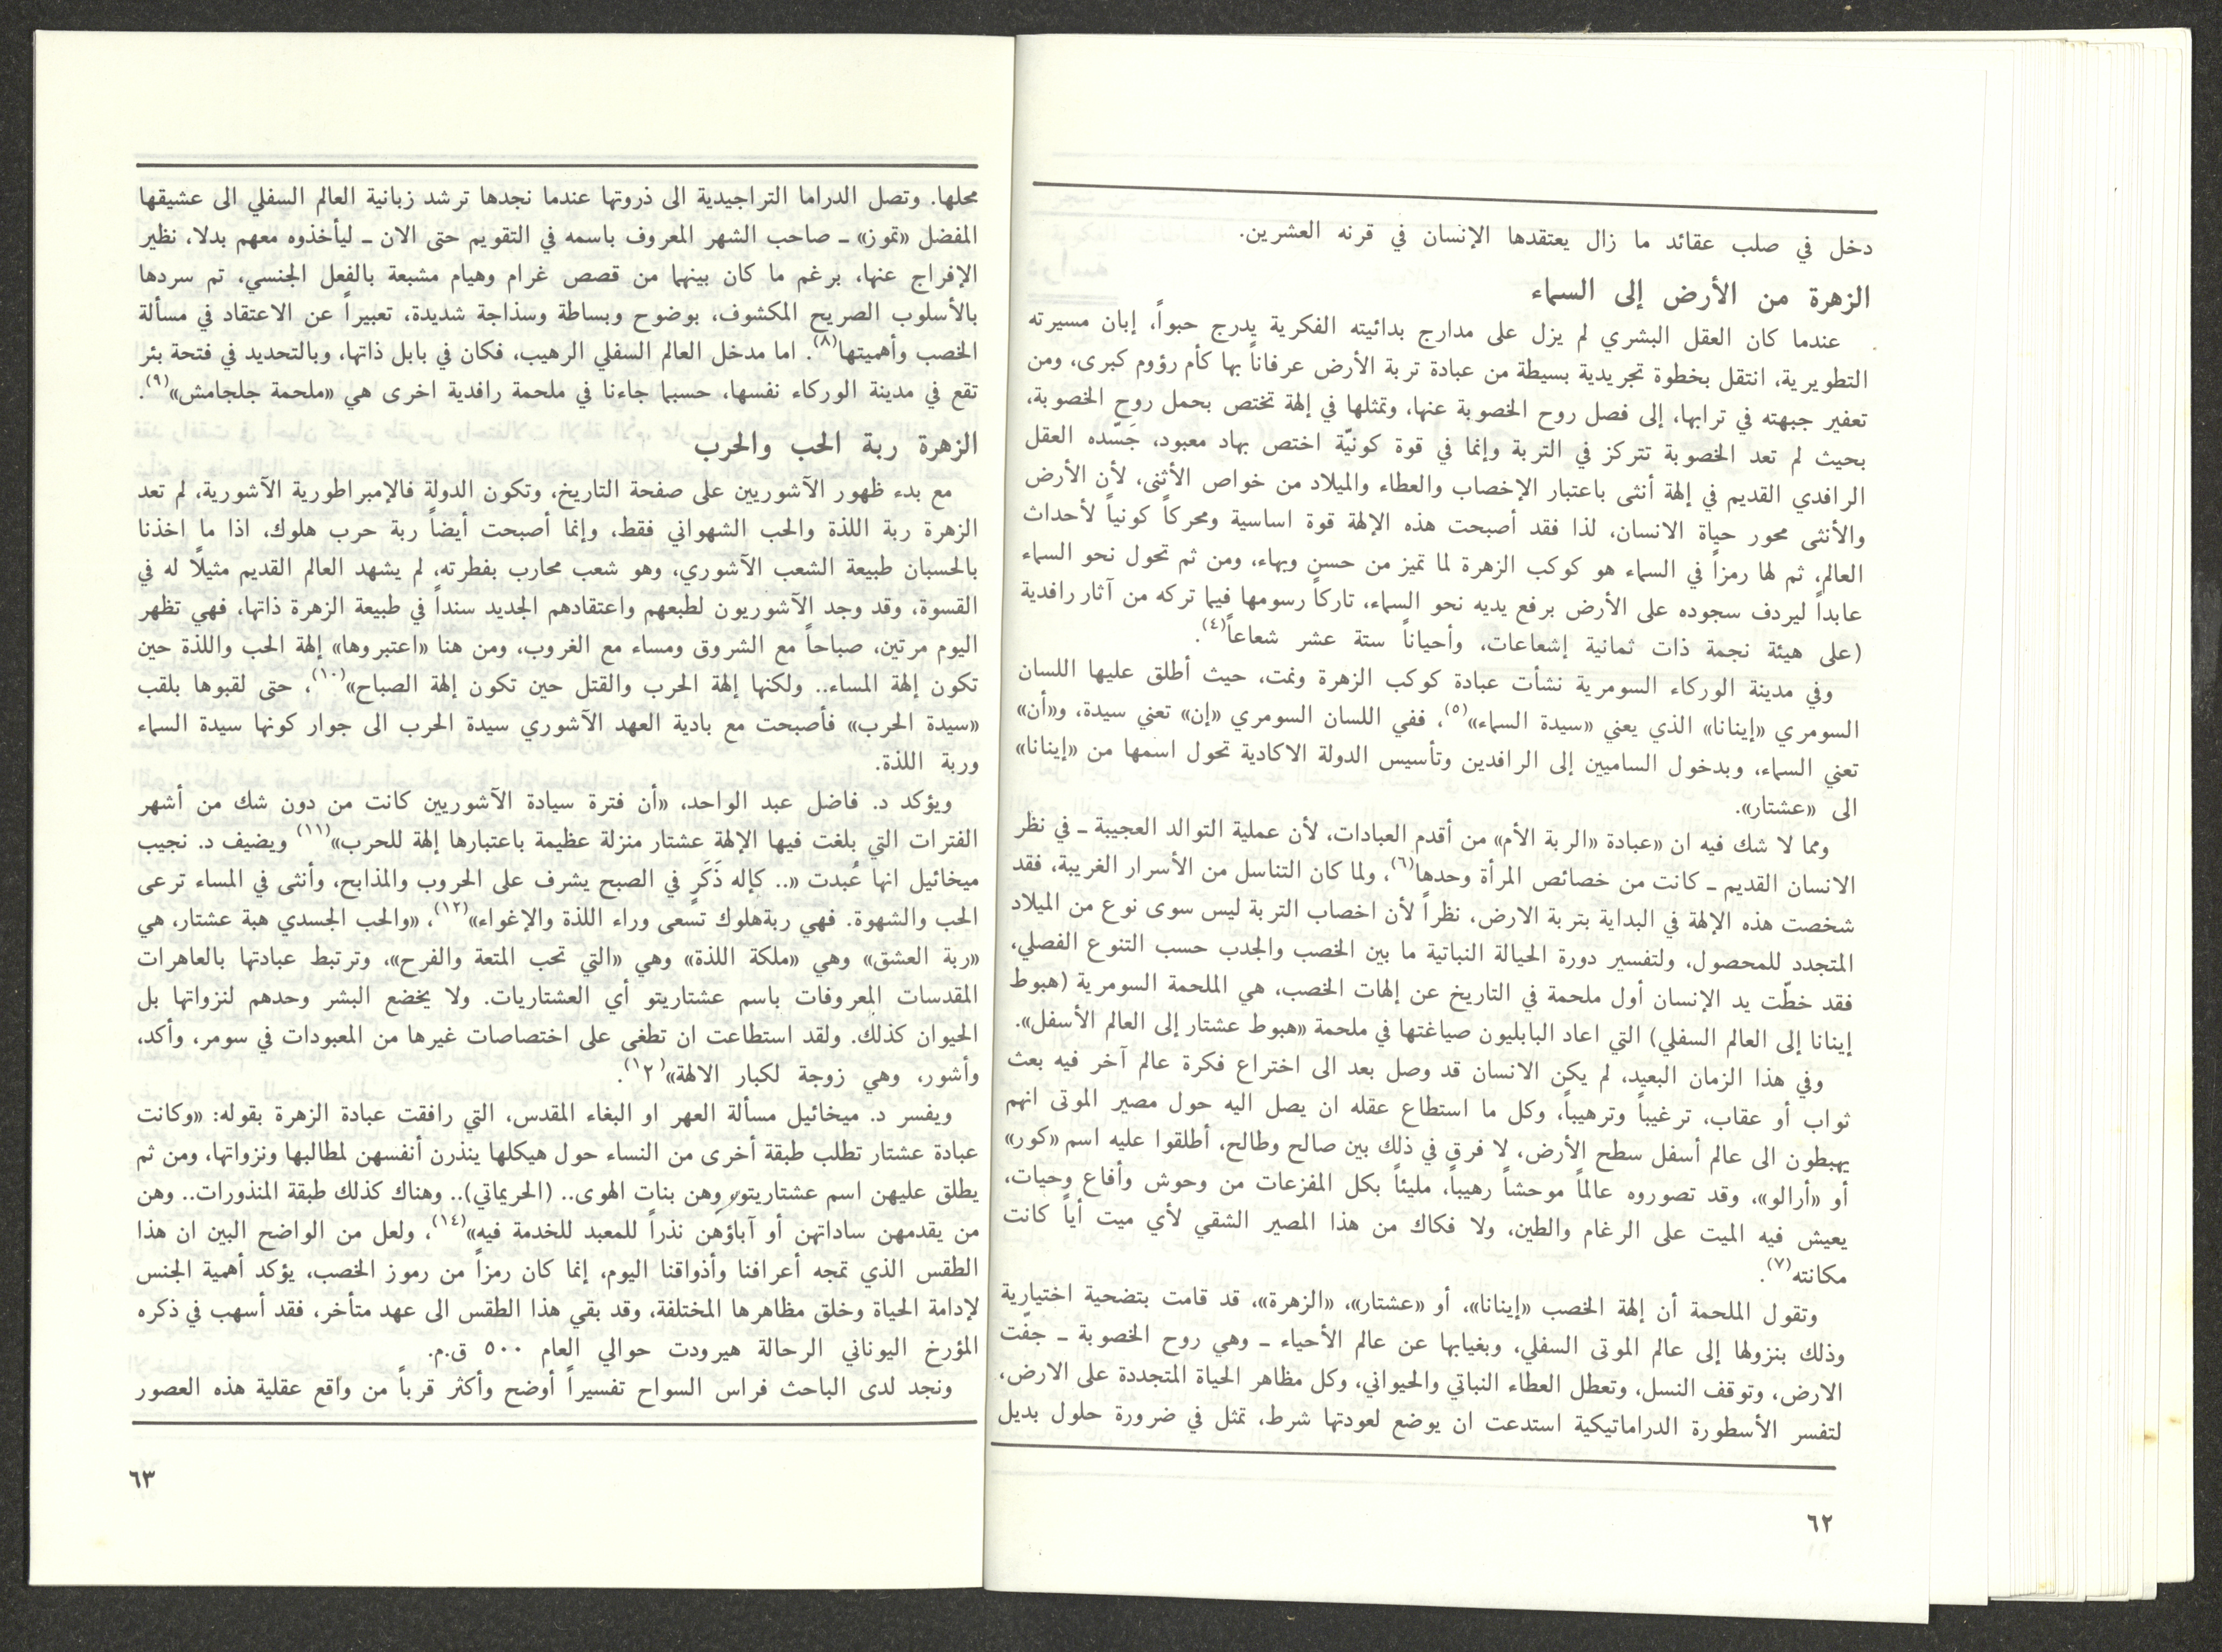 دخل في صلب عقائد ما زال يعتقدها الإنسان في قرنه العشرين.
الزهرة من الأرض إلى السماء
عندما كان العقل البشري لم يزل على مدارج بدائيته الفكرية يدرج حبواً، إبان مسيرته
التطويرية، انتقل بخطوة تجريدية بسيطة من عبادة تربة الأرض عرفاناً بها كأم رؤوم كبرى، ومن
تعفير جبهته في ترابها، إلى فصل روح الخصوبة عنها، وتمثلها في إلهة تختص بحمل روح الخصوبة،
بحيث لم تعد الخصوبة تتركز في التربة وإنما في قوة كونيّة اختص بهاد معبود، جَسّده العقل
الرافدي القديم في إلهة أنثى باعتبار الإخصاب والعطاء والميلاد من خواص الأنثى، لأن الأرض
والأنثى محور حياة الانسان، لذا فقد أصبحت هذه الإلهة قوة اساسية ومحركاً كونياً لأحداث
العالم، ثم لها رمزاً في السماء هو كوكب الزهرة لما تميز من حسن وبهاء، ومن ثم تحول نحو السماء
عابداً ليردف سجوده على الأرض برفع يديه نحو السماء، تاركاً رسومها فيما تركه من آثار رافدية
(على هيئة نجمة ذات ثمانية إشعاعات، وأحياناً ستة عشر شعاعاً(٤).
وفي مدينة الوركاء السومرية نشأت عبادة كوكب الزهرة ونمت، حيث أطلق عليها اللسان
السومري «إينانا» الذي يعني «سيدة السماء»(٥)، ففي اللسان السومري «إن» تعني سيدة، و«أن»
تعني السماء، وبدخول الساميين إلى الرافدين وتأسيس الدولة الاكادية تحول اسمها من «إينانا»
الى «عشتار».
ومما لا شك فيه ان «عبادة «الربة الأم» من أقدم العبادات، لأن عملية التوالد العجيبة ــ في نظر
الانسان القديم ــ كانت من خصائص المرأة وحدها(٦)، ولما كان التناسل من الأسرار الغريبة، فقد
شخصت هذه الإلهة في البداية بتربة الارض، نظراً لأن اخصاب التربة ليس سوى نوع من الميلاد
المتجدد للمحصول، ولتفسير دورة الحيالة النباتية ما بين الخصب والجدب حسب التنوع الفصلي،
فقد خطّت يد الإنسان أول ملحمة في التاريخ عن إلهات الخصب، هي الملحمة السومرية (هبوط
إينانا إلى العالم السفلي) التي اعاد البابليون صياغتها في ملحمة «هبوط عشتار إلى العالم الأسفل».
وفي هذا الزمان البعيد، لم يكن الانسان قد وصل بعد الى اختراع فكرة عالم آخر فيه بعث
ثواب أو عقاب، ترغيباً وترهيباً، وكل ما استطاع عقله ان يصل اليه حول مصير الموتى انهم
يهبطون الى عالم أسفل سطح الأرض، لا فرق في ذلك بين صالح وطالح، أطلقوا عليه اسم «كور»
أو «أرالو»، وقد تصوروه عالماً موحشاً رهيباً، مليئاً بكل المفزعات من وحوش وأفاع وحيات،
يعيش فيه الميت على الرغام والطين، ولا فكاك من هذا المصير الشقي لأي ميت أياً كانت
مكانته(٧).
وتقول الملحمة أن إلهة الخصب «إينانا»، أو «عشتار»، «الزهرة»، قد قامت بتضحية اختيارية
وذلك بنزولها إلى عالم الموتى السفلي، وبغيابها عن عالم الأحياء ــ وهي روح الخصوبة ــ جفّت
الارض، وتوقف النسل، وتعطل العطاء النباتي والحيواني، وكل مظاهر الحياة المتجددة على الارض،
لتفسر الأسطورة الدراماتيكية استدعت ان يوضع لعودتها شرط، تمثل في ضرورة حلول بديل
٦٢
محلها. وتصل الدراما التراجيدية الى ذروتها عندما نجدها ترشد زبانية العالم السفلي الى عشيقها
المفضل «تموز» ــ صاحب الشهر المعروف باسمه في التقويم حتى الان ــ ليأخذوه معهم بدلا، نظير
الإفراج عنها، برغم ما كان بينهما من قصص غرام وهيام مشبعة بالفعل الجنسي، تم سردها
بالأسلوب الصريح المكشوف، بوضوح وبساطة وسذاجة شديدة، تعبيراً عن الاعتقاد في مسألة
الخصب وأهميتها(٨). اما مدخل العالم السفلي الرهيب، فكان في بابل ذاتها، وبالتحديد في فتحة بئر
تقع في مدينة الوركاء نفسها، حسبما جاءنا في ملحمة رافدية اخرى هي «ملحمة جلجامش»(٩).
الزهرة ربة الحب والحرب
مع بدء ظهور الآشوريين على صفحة التاريخ، وتكون الدولة فالإمبراطورية الآشورية، لم تعد
الزهرة ربة اللذة والحب الشهواني فقط، وإنما أصبحت أيضاً ربة حرب هلوك، اذا ما اخذنا
بالحسبان طبيعة الشعب الآشوري، وهو شعب محارب بفطرته، لم يشهد العالم القديم مثيلًا له في
القسوة، وقد وجد الآشوريون لطبعهم واعتقادهم الجديد سنداً في طبيعة الزهرة ذاتها، فهي تظهر
اليوم مرتين، صباحاً مع الشروق ومساء مع الغروب، ومن هنا «اعتبروها» إلهة الحب واللذة حين
تكون إلهة المساء.. ولكنها إلهة الحرب والقتل حين تكون إلهة الصباح»(١٠)، حتى لقبوها بلقب
«سيدة الحرب» فأصبحت مع بادية العهد الآشوري سيدة الحرب الى جوار كونها سيدة السماء
وربة اللذة.
ويؤكد د. فاضل عبد الواحد، «أن فترة سيادة الآشوريين كانت من دون شك من أشهر
الفترات التي بلغت فيها الإلهة عشتار منزلة عظيمة باعتبارها إلهة للحرب»(١١) ويضيف د. نجيب
ميخائيل انها عُبدت «.. كإله ذَكَرٍ في الصبح يشرف على الحروب والمذابح، وأنثى في المساء ترعى
الحب والشهوة. فهي ربةهلوك تسعى وراء اللذة والإغواء»(١٢)، «والحب الجسدي هبة عشتار، هي
«ربة العشق» وهي «ملكة اللذة» وهي «التي تحب المتعة والفرح»، وترتبط عبادتها بالعاهرات
المقدسات المعروفات باسم عشتاريتو أي العشتاريات. ولا يخضع البشر وحدهم لنزواتها بل
الحيوان كذلك. ولقد استطاعت ان تطغى على اختصاصات غيرها من المعبودات في سومر، وأكد،
وأشور، وهي زوجة لكبار الالهة»(١٢).
ويفسر د. ميخائيل مسألة العهر او البغاء المقدس، التي رافقت عبادة الزهرة بقوله: «وكانت
عبادة عشتار تطلب طبقة أخرى من النساء حول هيكلها ينذرن أنفسهن لمطالبها ونزواتها، ومن ثم
يطلق عليهن اسم عشتاريتو وهن بنات الهوى.. (الحريماتي).. وهناك كذلك طبقة المنذورات.. وهن
من يقدمهن ساداتهن أو آباؤهن نذراً للمعبد للخدمة فيه»(١٤)، ولعل من الواضح البين ان هذا
الطقس الذي تمجه أعرافنا وأذواقنا اليوم، إنما كان رمزاً من رموز الخصب، يؤكد أهمية الجنس
لإدامة الحياة وخلق مظاهرها المختلفة، وقد بقي هذا الطقس الى عهد متأخر، فقد أسهب في ذكره
المؤرخ اليوناني الرحالة هيرودت حوالي العام ٥٠٠ ق.م.
ونجد لدى الباحث فراس السواح تفسيراً أوضح وأكثر قرباً من واقع عقلية هذه العصور
٦٣